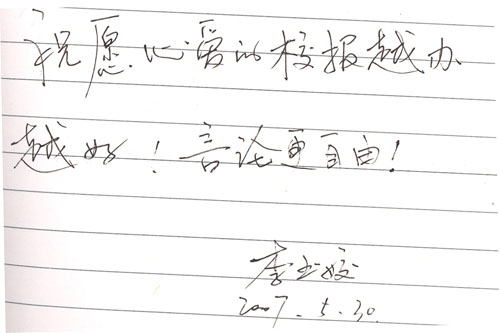 祝愿心爱的校报越办
越好！言论更自由！
李玉姣
2007.5.30.